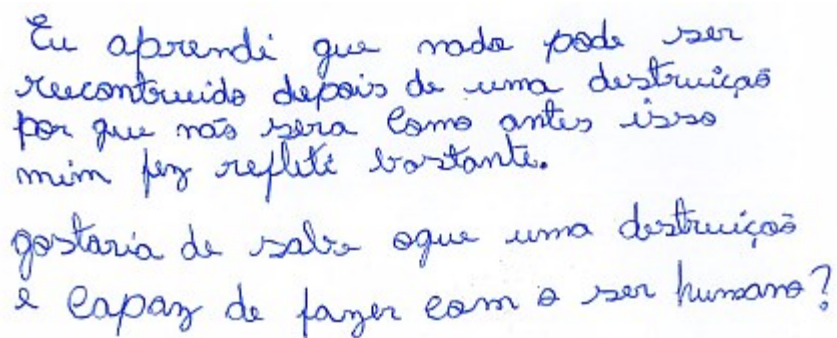 Eu aprendi que nada pode ser
recontruido depois de uma destruição
por que não sera como antes isso
mim fez refleti bastante.
gostaria de sabe oque uma destruição
e capaz de fazer com o ser humano?